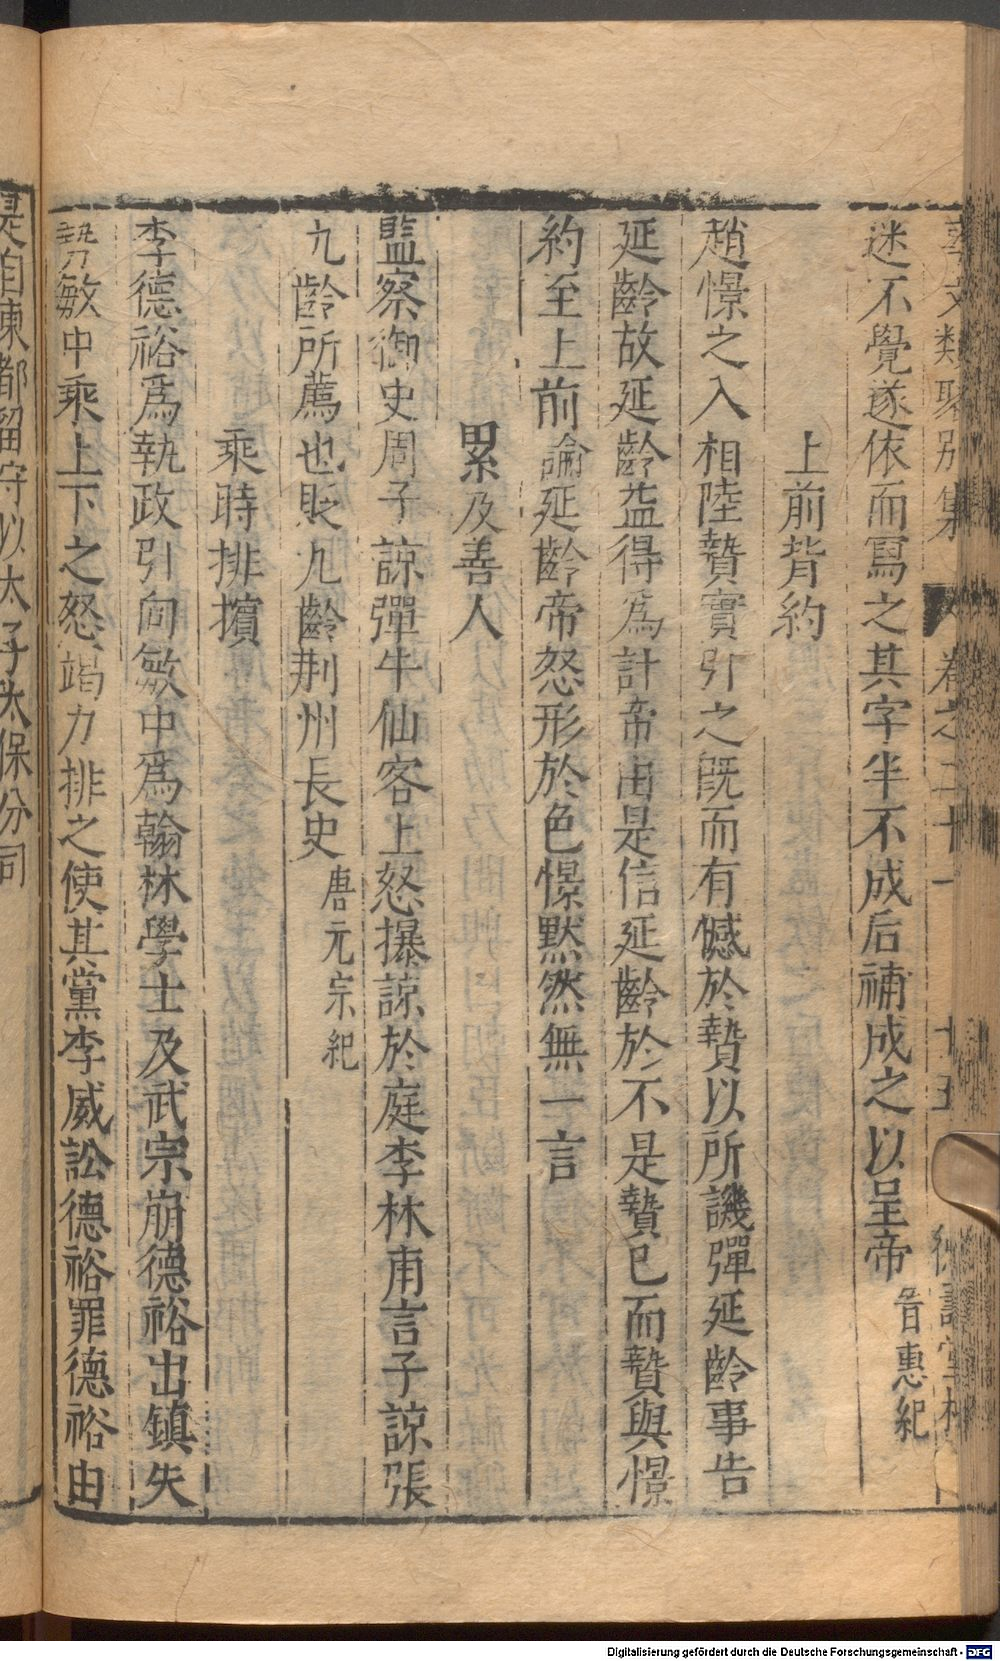 事文類聚別集 卷之二十一 十五 德壽堂梓
迷不覺遂依而寫之其字半不成后補成之以呈帝 晋惠紀
上前背約
趙憬之入相陸贄實引之既而有憾於贄以所譏彈延齡事告
延齡故延齡益得爲計帝由是信延齡於不是贄已而贄與憬
約至上前論延齡帝怒形於色憬默然無一言
累及善人
監察御史周子諒彈牛仙客上怒㩧諒於庭李林甫言子諒張
九齡所薦也貶九齡荆州長史 唐元宗紀
乘時排擯
李德裕爲執政引向敏中爲翰林學士及武宗崩德裕出鎮失
勢敏中乘上下之怒竭力排之使其黨李威訟德裕罪德裕由
是自東都留守以太子太保分司
Digitalisierung gefördert durch die Deutsche Forschungsgemeinschaft - DFG